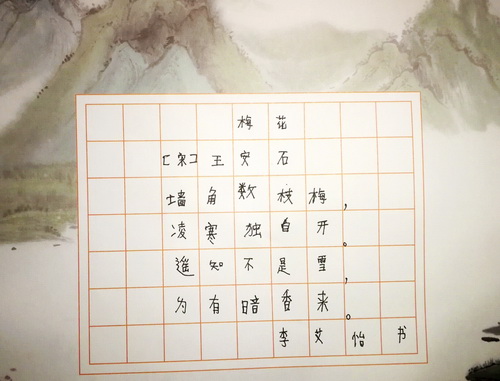 梅花
[宋]王安石
墙角数枝梅，
凌寒独自开。
遥知不是雪，
为有暗香来。
李艾怡书